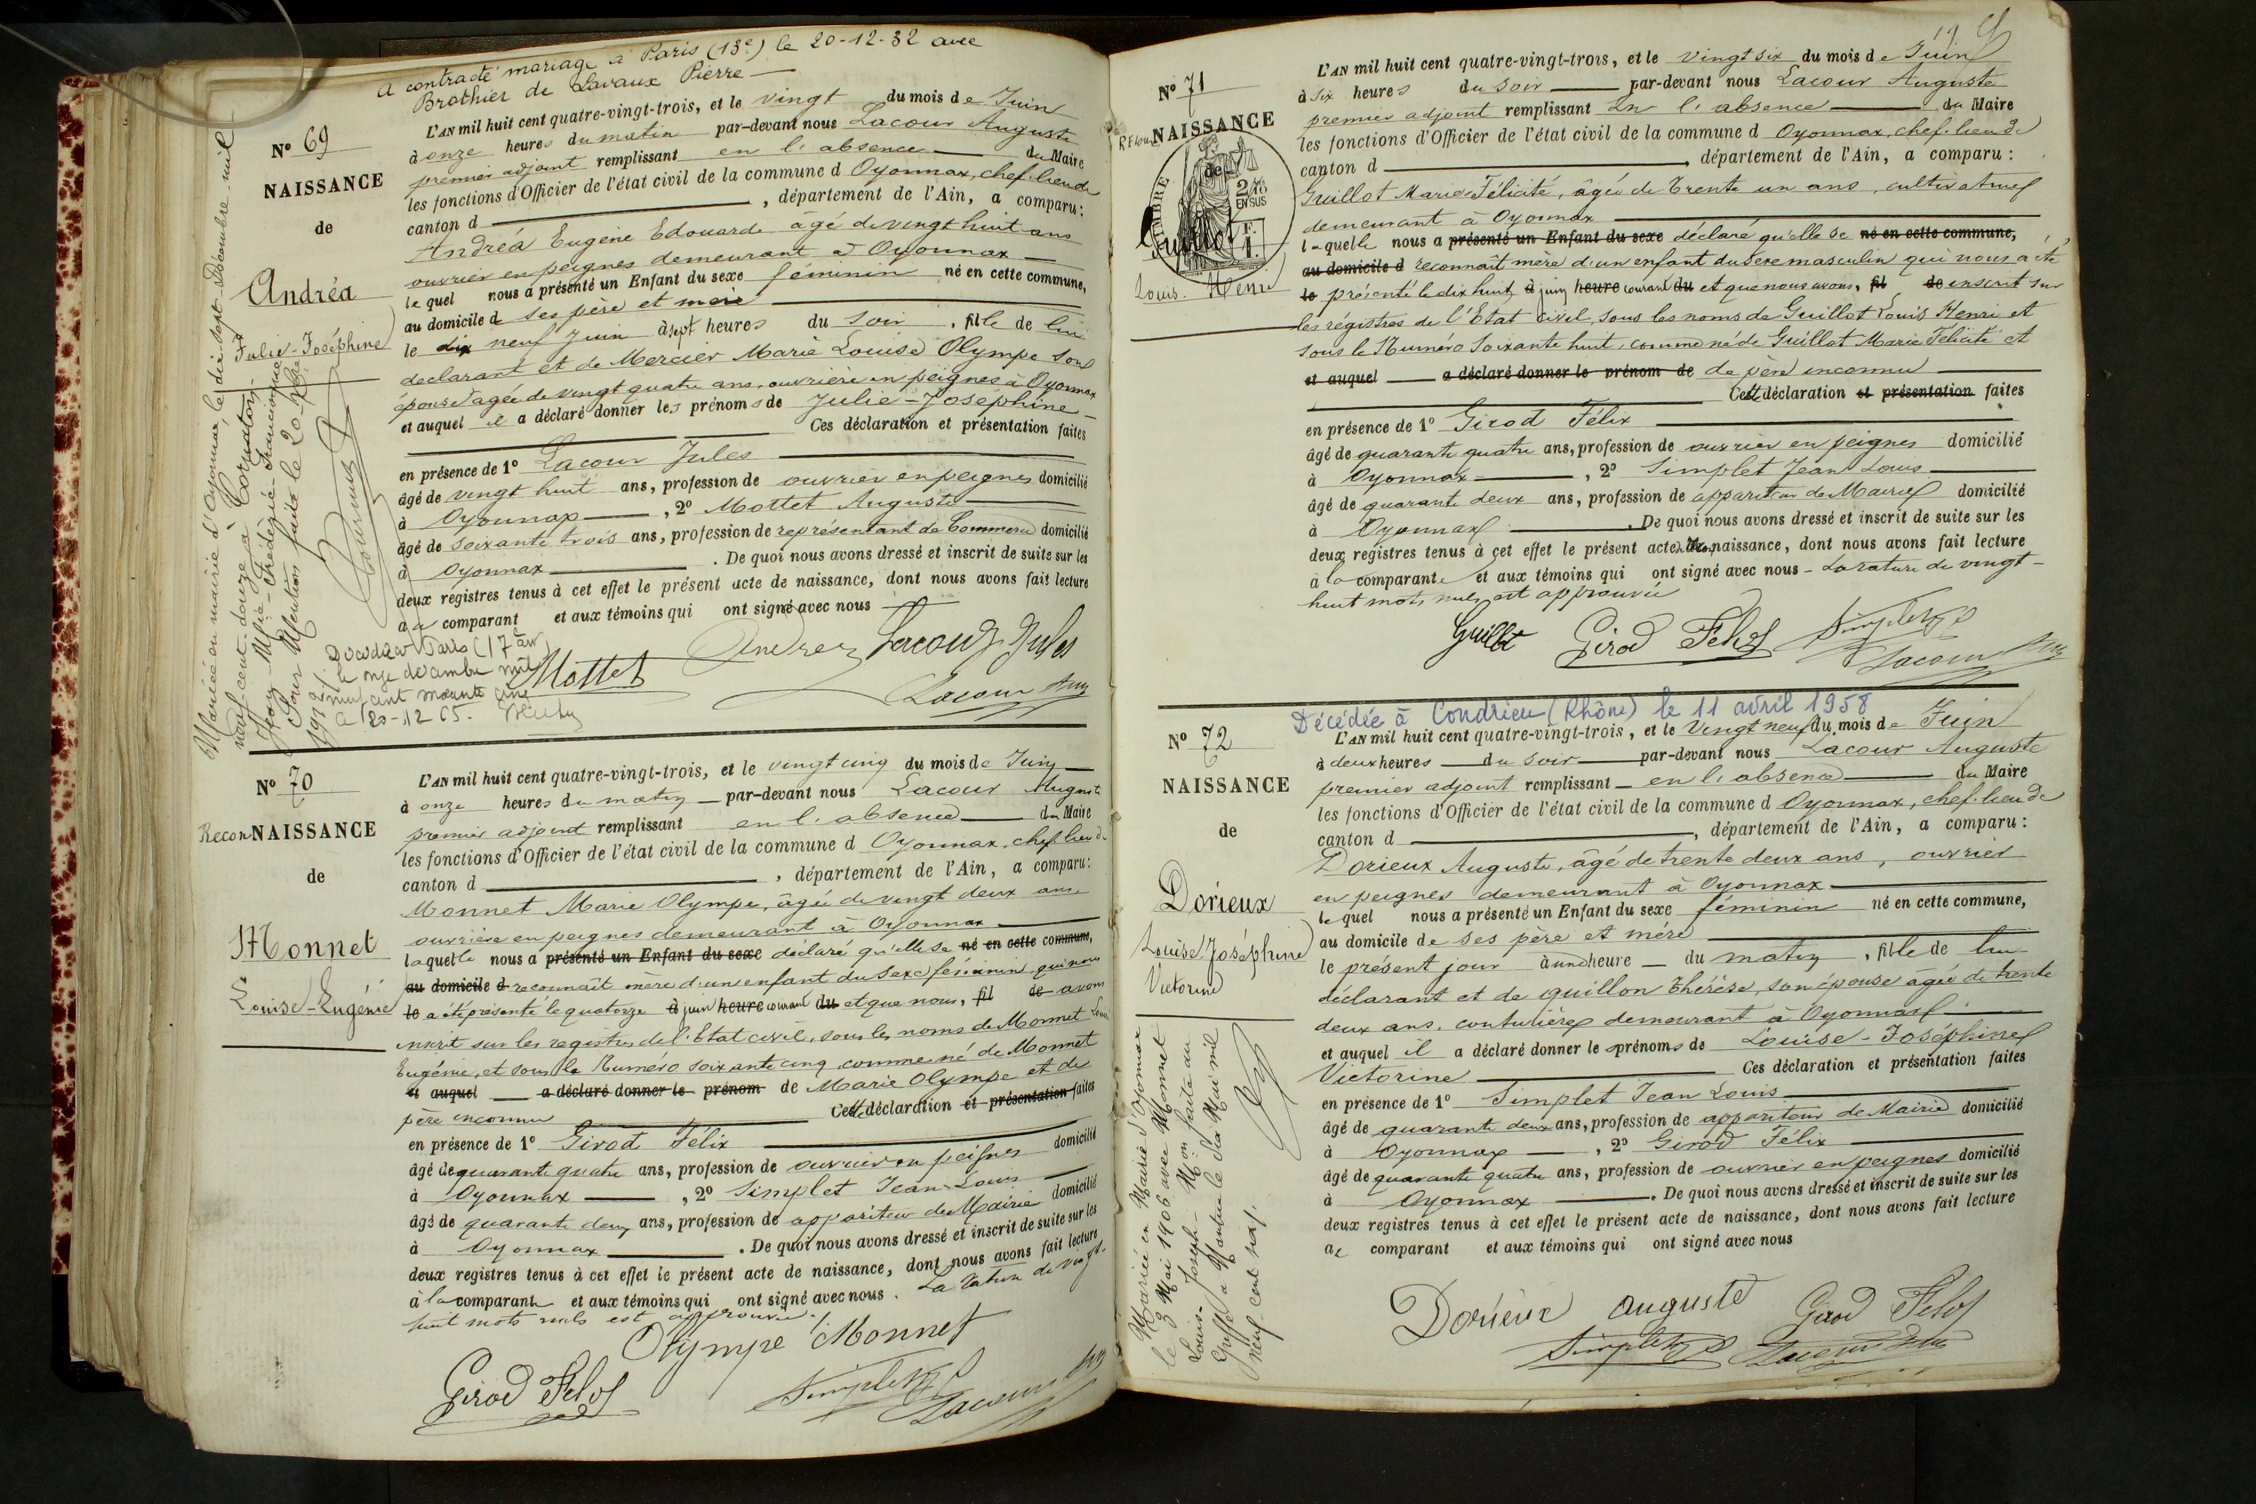 A contracté mariage à Paris (13e) le 20-12-32 avec
Brothier de Lavaux Pierre —
No 69
NAISSANCE
de
Andréa
Julie-Joséphine
L'AN mil huit cent quatre-vingt-trois, et le vingt du mois de Juin
à onze heures du matin par-devant nous Lacour Auguste
premier adjoint remplissant en l'absence du Maire
les fonctions d'Officier de l'état civil de la commune d Oyonnax, chef-lieu de
canton d , département de l'Ain, a comparu:
Andréa Eugène Edouard âgé de vingt huit ans
ouvrier en peignes demeurant à Oyonnax
lequel nous a présenté un Enfant du sexe féminin né en cette commune,
au domicile d ses père et mère
le dix neuf Juin à sept heures du soir, fille de lui
déclarant et de Mercier Marie Louise Olympe son
épouse âgée de vingt quatre ans, ouvrière en peignes à Oyonnax
et auquel il a déclaré donner les prénoms de Julie-Joséphine
Ces déclaration et présentation faites
en présence de 1o Lacour Jules
âgé de vingt huit ans, profession de ouvrier en peignes domicilié
à Oyonnax, 2o Mottet Auguste
âgé de soixante trois ans, profession de représentant de Commerce domicilié
à Oyonnax. De quoi nous avons dressé et inscrit de suite sur les
deux registres tenus à cet effet le présent acte de naissance, dont nous avons fait lecture
au comparant et aux témoins qui ont signé avec nous
Mottet Andréa Lacour Jules
Lacour Aug
Mariée en mairie d'Oyonnax, le dix-sept Décembre mil
neuf cent douze à
Pour Mention faite le 20
1912
Décédée à Paris (17e arr)
le onze décembre mil
neuf cent soixante cinq
le 20-12 65.
No 70
Recon NAISSANCE
de
Monnet
Louise-Eugénie
L'AN mil huit cent quatre-vingt-trois, et le vingt cinq du mois de Juin
à onze heures du matin par-devant nous Lacour August
premier adjoint remplissant en l'absence du Maire
les fonctions d'Officier de l'état civil de la commune d Oyonnax, chef-lieu de
canton d , département de l'Ain, a comparu:
Monnet Marie Olympe, âgée de vingt deux ans
ouvrière en peignes demeurant à Oyonnax
laquelle nous a présenté un Enfant du sexe déclaré qu'elle se né en cette commune,
au domicile d reconnaît mère d'un enfant du sexe féminin qui nous
le a été présenté le quatorze à juin heure courant du et que nous, fil de avons
inscrit sur les registres de l'Etat civil, sous les noms de Monnet Louise
Eugénie, et sous le Numéro soixante cinq, comme né de Monnet
et auquel a déclaré donner le prénom de Marie Olympe et de
père inconnu Cette déclaration et présentation faites
en présence de 1o Girod Félix
âgé de quarante quatre ans, profession de ouvrier en peignes domicilié
à Oyonnax, 2o Simplet Jean Louis
âgé de quarante deux ans, profession de appariteur de Mairie domicilié
à Oyonnax. De quoi nous avons dressé et inscrit de suite sur les
deux registres tenus à cet effet le présent acte de naissance, dont nous avons fait lecture
à la comparante et aux témoins qui ont signé avec nous. La rature de vingt-
huit mots nuls est approuvée
Olympe Monnet
Girod Félix Simplet
Lacour Aug
No 71
NAISSANCE
de
TIMBRE
2/10 EN SUS
Guillot
Louis Henri
L'AN mil huit cent quatre-vingt-trois, et le vingt six du mois de Juin
à six heures du soir par-devant nous Lacour Auguste
premier adjoint remplissant en l'absence du Maire
les fonctions d'Officier de l'état civil de la commune d Oyonnax, chef-lieu de
canton d , département de l'Ain, a comparu:
Guillot Marie Félicité, âgée de trente un ans, cultivatrice
demeurant à Oyonnax
laquelle nous a présenté un Enfant du sexe déclaré qu'elle se né en cette commune,
au domicile d reconnaît mère d'un enfant du sexe masculin qui nous a été
le présenté le dix huit à juin heure courant du et que nous avons, fil de inscrit sur
les régistres de l'Etat civil, sous les noms de Guillot Louis Henri et
sous le Numéro Soixante huit, comme né de Guillot Marie Félicité et
et auquel a déclaré donner le prénom de de père inconnu
Cette déclaration et présentation faites
en présence de 1o Girod Félix
âgé de quarante quatre ans, profession de ouvrier en peignes domicilié
à Oyonnax, 2o Simplet Jean Louis
âgé de quarante deux ans, profession de appariteur de Mairie domicilié
à Oyonnax. De quoi nous avons dressé et inscrit de suite sur les
deux registres tenus à cet effet le présent acte de naissance, dont nous avons fait lecture
à la comparante et aux témoins qui ont signé avec nous - La rature de vingt-
huit mots nuls est approuvée
Guillot Girod Félix Simplet
Lacour Aug
Décédée à Condrieu (Rhône) le 11 avril 1958
No 72
NAISSANCE
de
Dorieux
Louise Joséphine
Victorine
L'AN mil huit cent quatre-vingt-trois, et le Vingt neuf du mois de Juin
à deux heures du soir par-devant nous Lacour Auguste
premier adjoint remplissant en l'absence du Maire
les fonctions d'Officier de l'état civil de la commune d Oyonnax, chef-lieu de
canton d , département de l'Ain, a comparu:
Dorieux Auguste, âgé de trente deux ans, ouvrier
en peignes demeurant à Oyonnax
lequel nous a présenté un Enfant du sexe féminin né en cette commune,
au domicile de ses père et mère
le présent jour à une heure du matin, fille de lui
déclarant et de Guillon Thérèse, son épouse âgée de trente
deux ans, couturière demeurant à Oyonnax
et auquel il a déclaré donner les prénoms de Louise-Joséphine
Victorine Ces déclaration et présentation faites
en présence de 1o Simplet Jean Louis
âgé de quarante deux ans, profession de appariteur de Mairie domicilié
à Oyonnax, 2o Girod Félix
âgé de quarante quatre ans, profession de ouvrier en peignes domicilié
à Oyonnax. De quoi nous avons dressé et inscrit de suite sur les
deux registres tenus à cet effet le présent acte de naissance, dont nous avons fait lecture
au comparant et aux témoins qui ont signé avec nous
Dorieux auguste Girod Félix
Simplet Lacour Aug
Mariée en Mairie d'Oyonnax
le 3 Mai 1906 avec Monnet
Louis-Joseph - Mon faite au
Greffe à Nantua le Six Mai mil
neuf cent six.